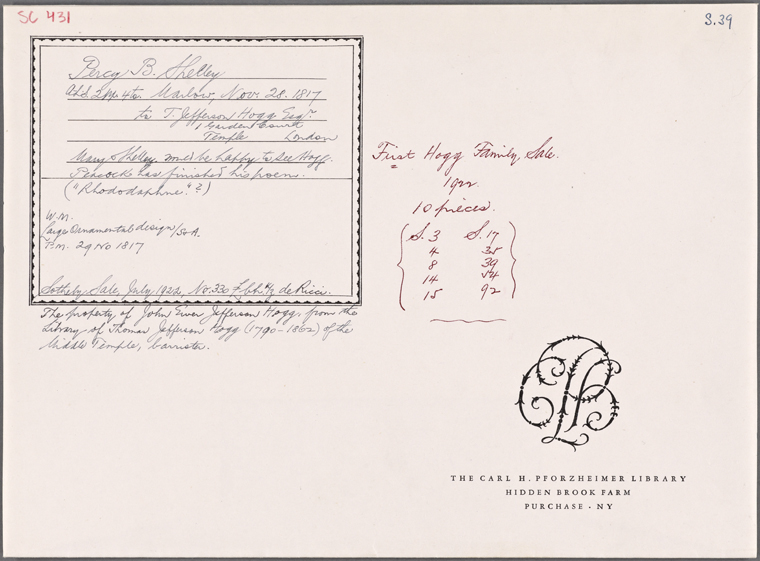 SC 431
S.39
Percy B. Shelley
A.L.S. 2pp. 4to Marlow, Nov. 28. 1817
to T. Jefferson Hogg Esqr.
1 Garden Court
Temple London
Mary & Shelley would be happy to see Hogg.
Peacock has finished his poem.
("Rhododaphne"?)
W.M.
Large Ornamental design/So.A.
P.M. 29 NO 1817
Sotheby Sale, July 1922, No. 330 de Ricci.
The property of John Jefferson Hogg, from the
Library of Thomas Jefferson Hogg (1790-1862) of the
Middle Temple, barrister.
First Hogg Family, Sale.
1922
10 pieces.
S. 3 S. 17
4 35
8 39
14 54
15 92
THE CARL H. PFORZHEIMER LIBRARY
HIDDEN BROOK FARM
PURCHASE · NY